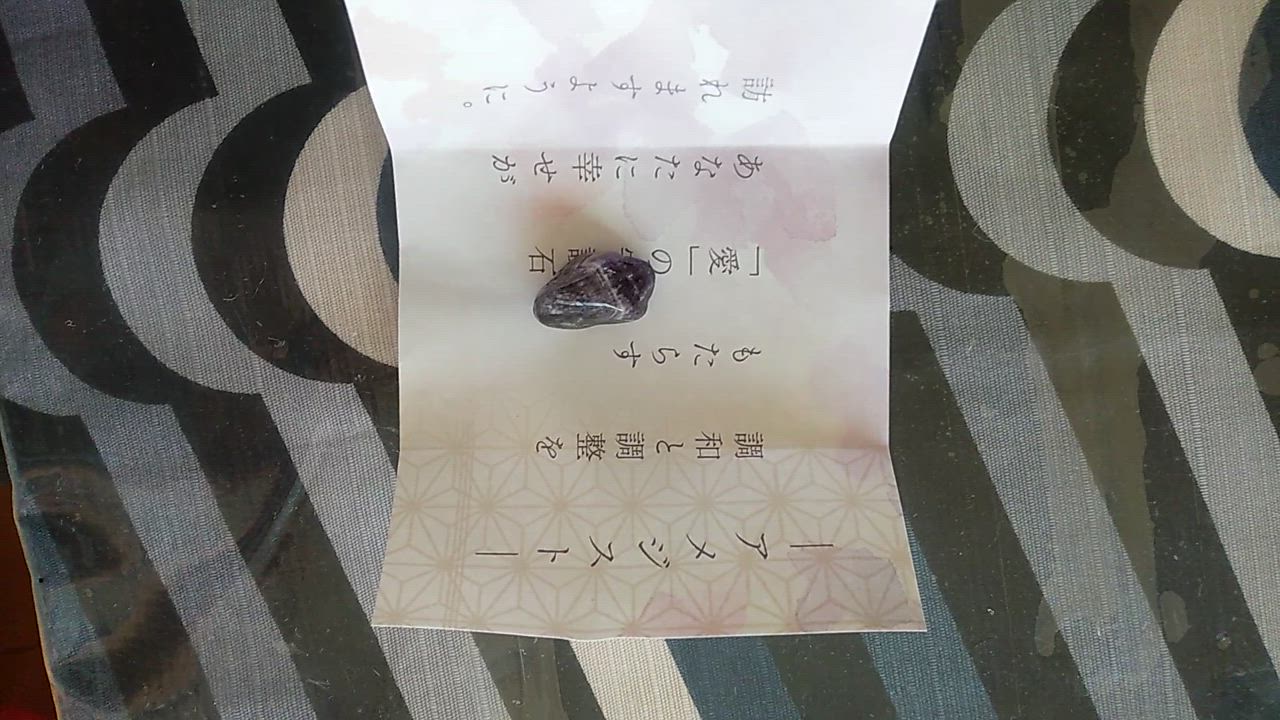 ―アメジスト―
調和と調整を
もたらす
「愛」の石
あなたに幸せが
訪れますように。